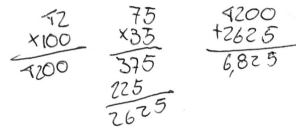 42
x100
4200
75
x35
375
225
2625
4200
+2625
6,825